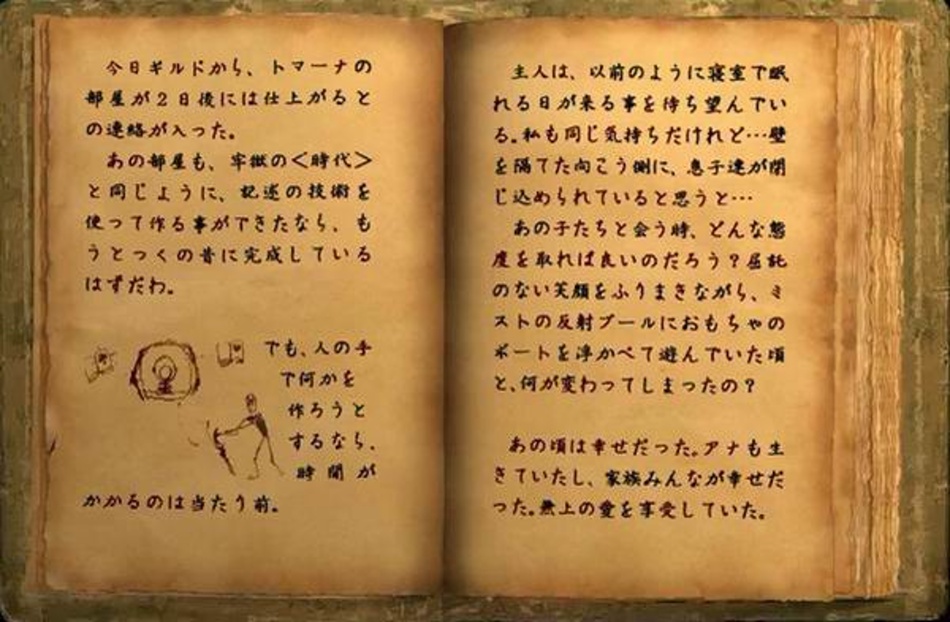 今日ギルドから、トマーナの
部屋が２日後には仕上がると
の連絡が入った。
あの部屋も、牢獄の＜時代＞
と同じように、記述の技術を
使って作る事ができたなら、も
うとっくの昔に完成している
はずだわ。
でも、人の手
で何かを
作ろうと
するなら、
時間が
かかるのは当たり前。
主人は、以前のように寝室で眠
れる日が来る事を待ち望んでい
る。私も同じ気持ちだけれど…壁
を隔てた向こう側に、息子達が閉
じ込められていると思うと…
あの子たちと会う時、どんな態
度を取れば良いのだろう？屈託
のない笑顔をふりまきながら、ミ
ストの反射プールにおもちゃの
ボートを浮かべて遊んでいた頃
と、何が変わってしまったの？
あの頃は幸せだった。アナも生
きていたし、家族みんなが幸せだ
った。無上の愛を享受していた。